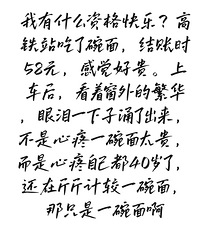 我有什么资格快乐？高
铁站吃了碗面，结账时
58元，感觉好贵。上
车后，看着窗外的繁华
，眼泪一下子涌了出来，
不是心疼一碗面太贵，
而是心疼自己都40岁了，
还在斤斤计较一碗面，
那只是一碗面啊